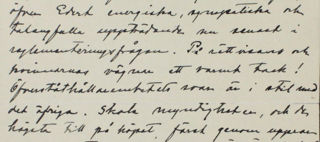 öfver Edert energiska, sympatiska och
talangfulla uppträdande nu senast i
reglementeringsfrågan. På rättvisans och
kvinnornas vägnar ett varmt tack!
Öfverståthållareembetets svar är i stil med
det öfriga. Skola myndigheten, och de
högsta till på köpet, först genom uppean